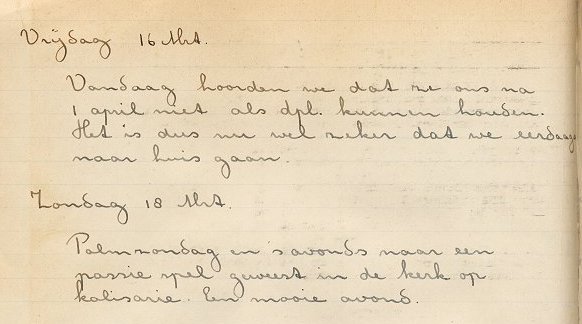 Vrijdag 16 Mrt.
Vandaag hoorden we dat ze ons na
1 april niet als dpl. kunnen houden.
Het is dus nu wel zeker dat we eerdaags
naar huis gaan.
Zondag 18 Mrt.
Palmzondag en 's avonds naar een
passie spel geweest in de kerk op
kalisarie. En mooie avond.